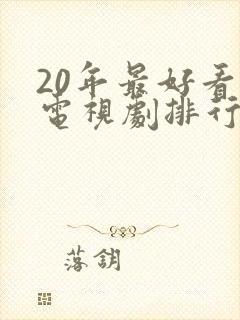 20年最好看
电視劇排行
落鈅